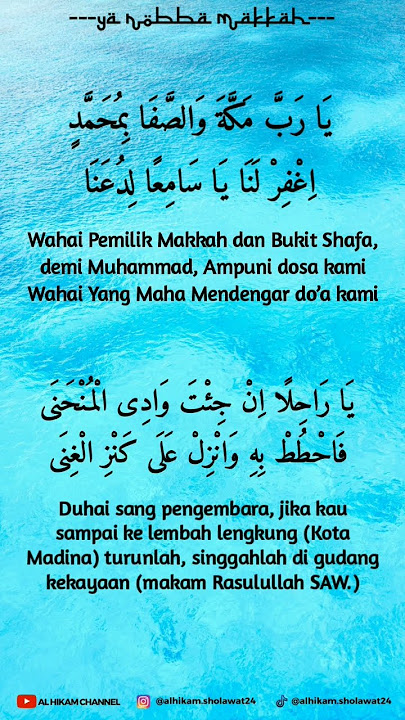 ---ya robba makkah---
يَا رَبَّ مَكَّةَ وَالصَّفَا بِمُحَمَّدٍ
اِغْفِرْ لَنَا يَا سَامِعًا لِدُعَنَا
Wahai Pemilik Makkah dan Bukit Shafa,
demi Muhammad, Ampuni dosa kami
Wahai Yang Maha Mendengar do'a kami
يَا رَاحِلًا اِنْ جِئْتَ وَادِى الْمُنْحَنَى
فَاحْطُطْ بِهِ وَانْزِلْ عَلَى كَنْزِ الْغِنَى
Duhai sang pengembara, jika kau
sampai ke lembah lengkung (Kota
Madina) turunlah, singgahlah di gudang
kekayaan (makam Rasulullah SAW.)
AL HIKAM CHANNEL @alhikam.sholawat24 @alhikam.sholawat24